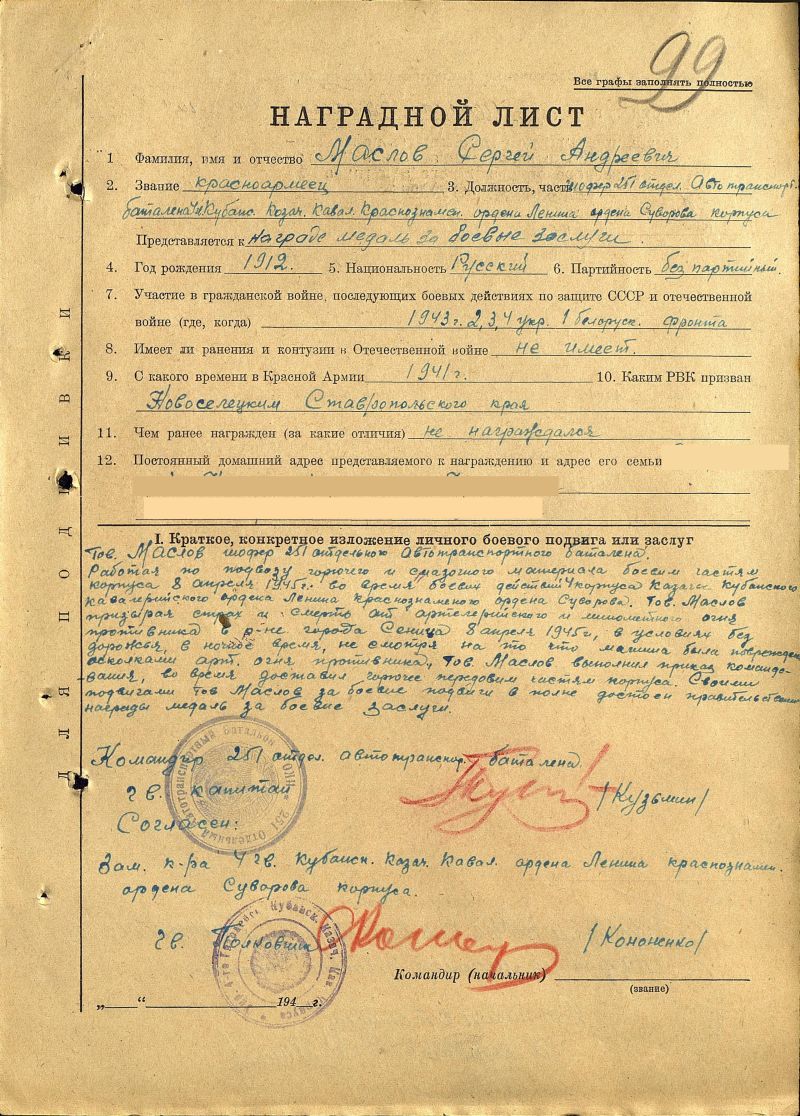 99
Все графы заполнять полностью
НАГРАДНОЙ ЛИСТ
1 Фамилия, имя и отчество Маслов Сергей Андреевич
2. Звание красноармеец 3. Должность, часть шофер 251 отдел. Автотранспорт.
баталена 4 Кубанс. Казач. Кавал. Краснознамен. ордена Ленина ордена Суворова корпуса
Представляется к награде медаль за боевые заслуги.
4. Год рождения 1912. 5. Национальность Русский 6. Партийность без партийный.
7. Участие в гражданской войне, последующих боевых действиях по защите СССР и отечественной
войне (где, когда) 1943 г. 2, 3, 4 укр. 1 белоруск. фронта
8. Имеет ли ранения и контузии в Отечественной войне не имеет.
9. С какого времени в Красной Армии 1941 г. 10. Каким РВК призван
Новоселецким Ставропольского края
11. Чем ранее награжден (за какие отличия) не награждался
12. Постоянный домашний адрес представляемого к награждению и адрес его семьи
ДЛЯ ПОДШИВКИ
I. Краткое, конкретное изложение личного боевого подвига или заслуг
Тов. Маслов шофер 251 отдельного Автотранспортного баталена.
Работая по подвозу горючего и смазочного материала боевым частям
корпуса 8 апреля 1945 г. во время боевых действий 4 корпуса Казачь. Кубанского
кавалерийского ордена Ленина краснознаменого ордена Суворова. Тов. Маслов
призырая страх и смерть от артелерийского и минометного огня
противника в р-не города Сеница 8 апреля 1945 г, в условиях без
дорожья, в ночное время, не смотря на то что машина была повреждена
осколками арт. огня противника, Тов. Маслов выполнил приказ командо-
вания, во время доставил горючее передовым частям корпуса. Своими
подвигами Тов Маслов за боевые подвиги в полне достоен правительствен
награды медаль за боевые заслуги.
Командир 251 отдел. автотранспор. баталена
гв. капитан /Кузьмин/
251 Отдельный Автотранспортный Батальон
Согласен:
Зам. к-ра 4 гв. Кубанск. Казач. Кавал. ордена Ленина краснознамен.
ордена Суворова корпуса.
гв. Полковник /Кононенко/
Командир (начальник)
(звание)
„ “ 194 г.